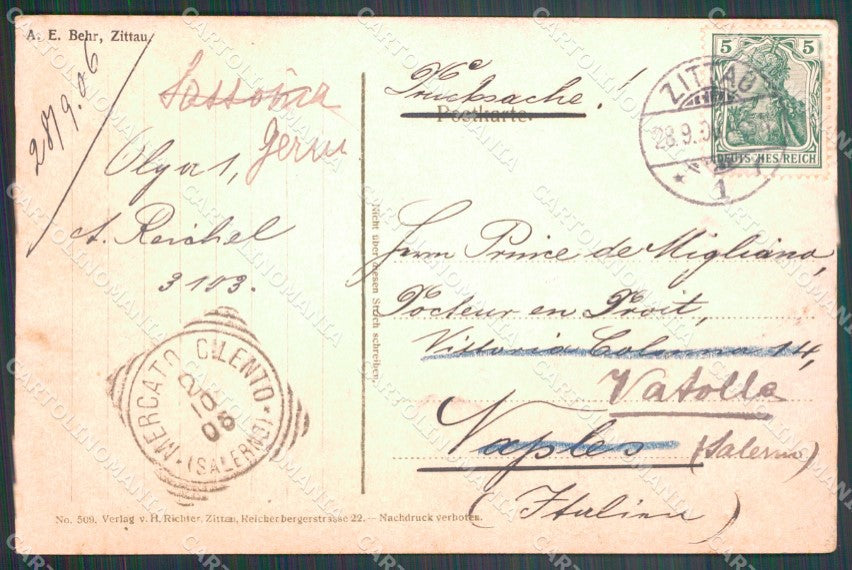 A. E. Behr, Zittau
28/9.06
Sassonia
Germ
Olga 1,
A. Reichel
3103.
MERCATO CILENTO
(SALERNO)
No. 509. Verlag v. H. Richter, Zittau, Reichenbergerstrasse 22. — Nachdruck verboten.
Nicht über diesen Strich schreiben.
Drucksache!
Postkarte.
5 5
DEUTSCHES REICH
ZITTAU
28.9.06
1
Herrn Prince de Migliano,
Docteur en Droit,
Vittoria Colonna 14,
Vatolla
Naples (Salerno)
(Italien)
CARTOLINOMANIA